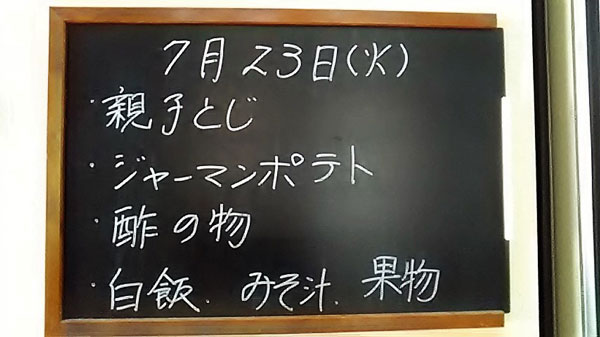 7月23日(火)
・親子とじ
・ジャーマンポテト
・酢の物
・白飯、みそ汁、果物